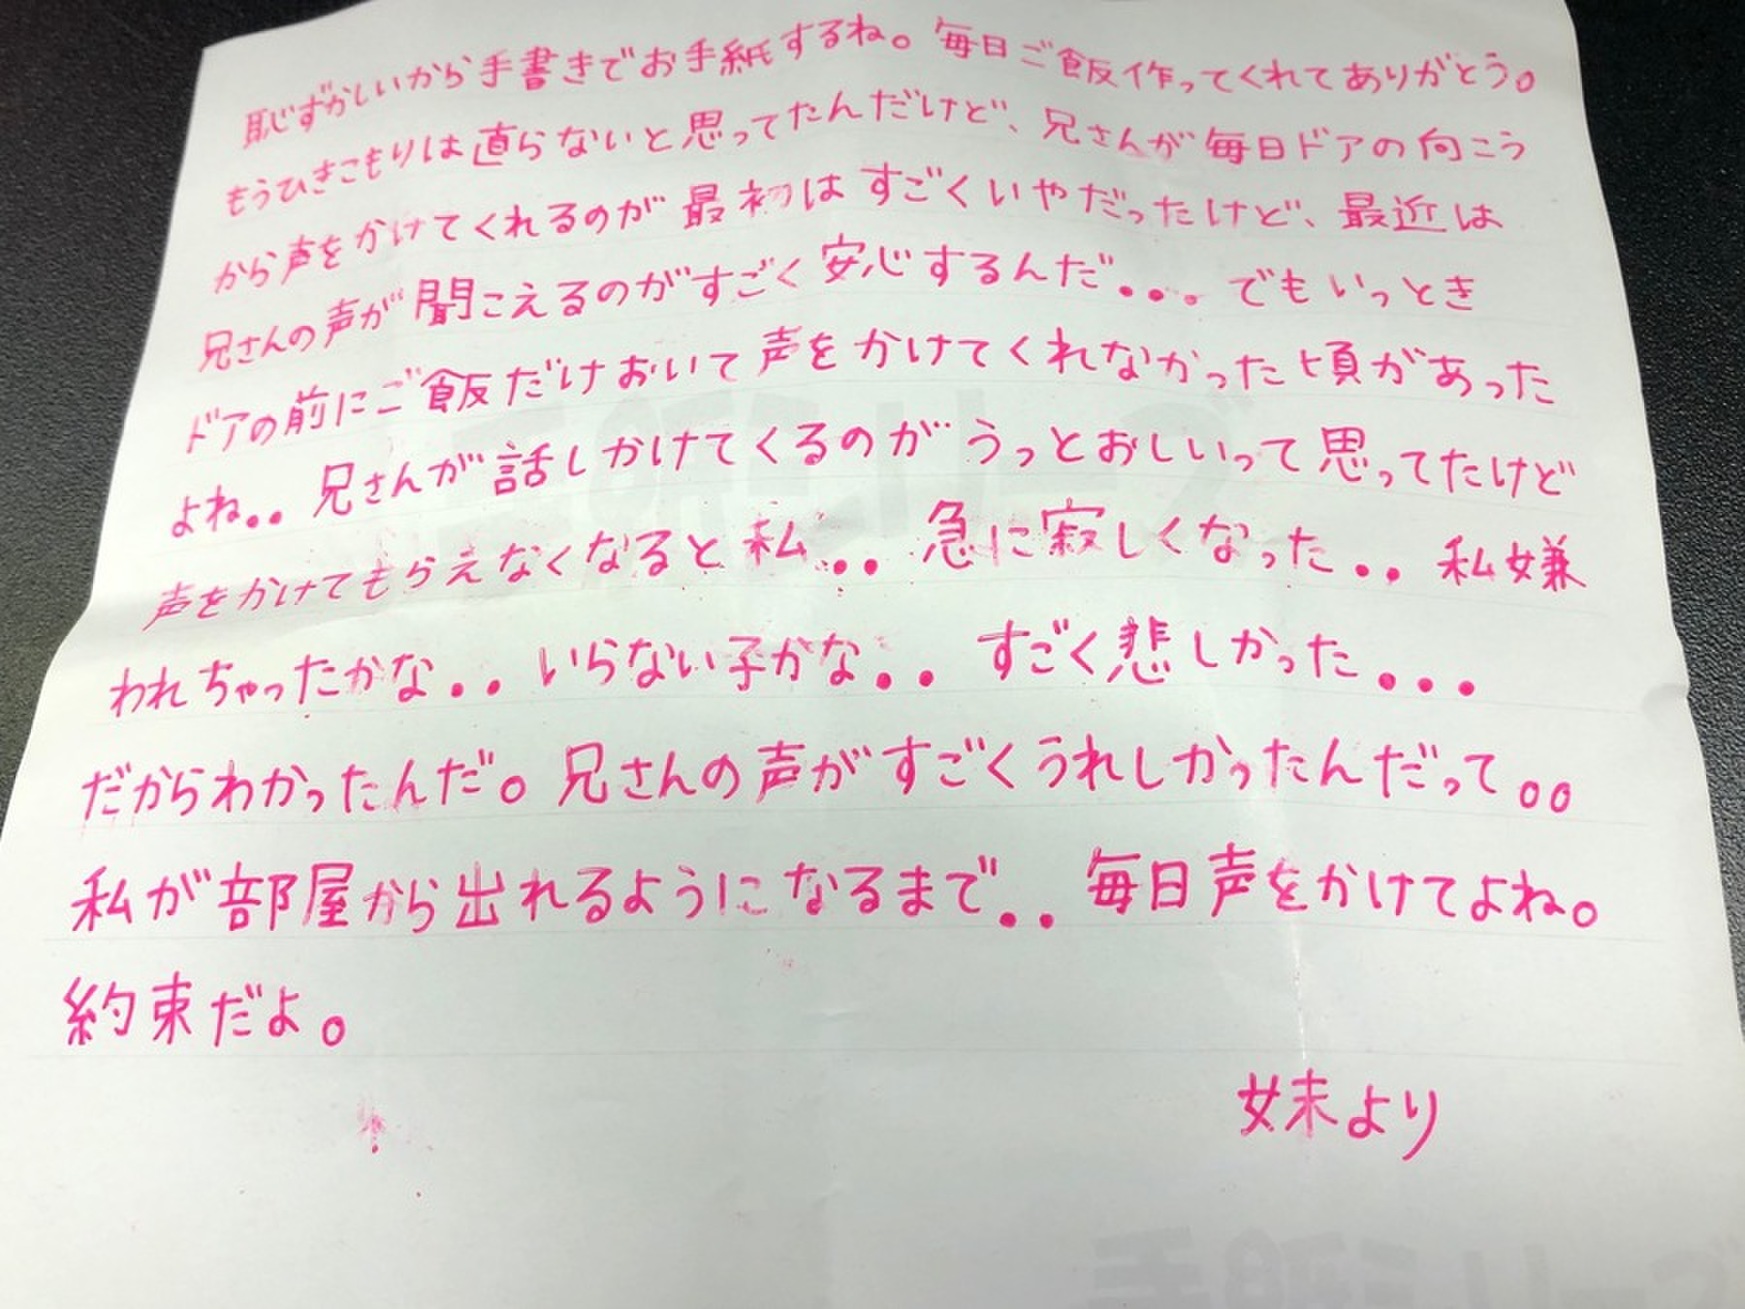 恥じずかしいから手書きでお手紙するね。毎日ご飯作ってくれてありがとう。
もうひきこもりは直らないと思ってたんだけど、兄さんが毎日ドアの向こう
から声をかけてくれるのが最初はすごくいやだったけど、最近は
兄さんの声が聞こえるのがすごく安心するんだ...でもいっとき
ドアの前にご飯だけおいて声をかけてくれなかった頃があった
よね..兄さんが話しかけてくるのがうっとおしいって思ってたけど
声をかけてもらえなくなると私..急に寂しくなった..私嫌
われちゃったかな..いらない子かな..すごく悲しかった...
だからわかったんだ。兄さんの声がすごくうれしかったんだって。。
私が部屋から出れるようになるまで..毎日声をかけてよね。
約束だよ。
妹より